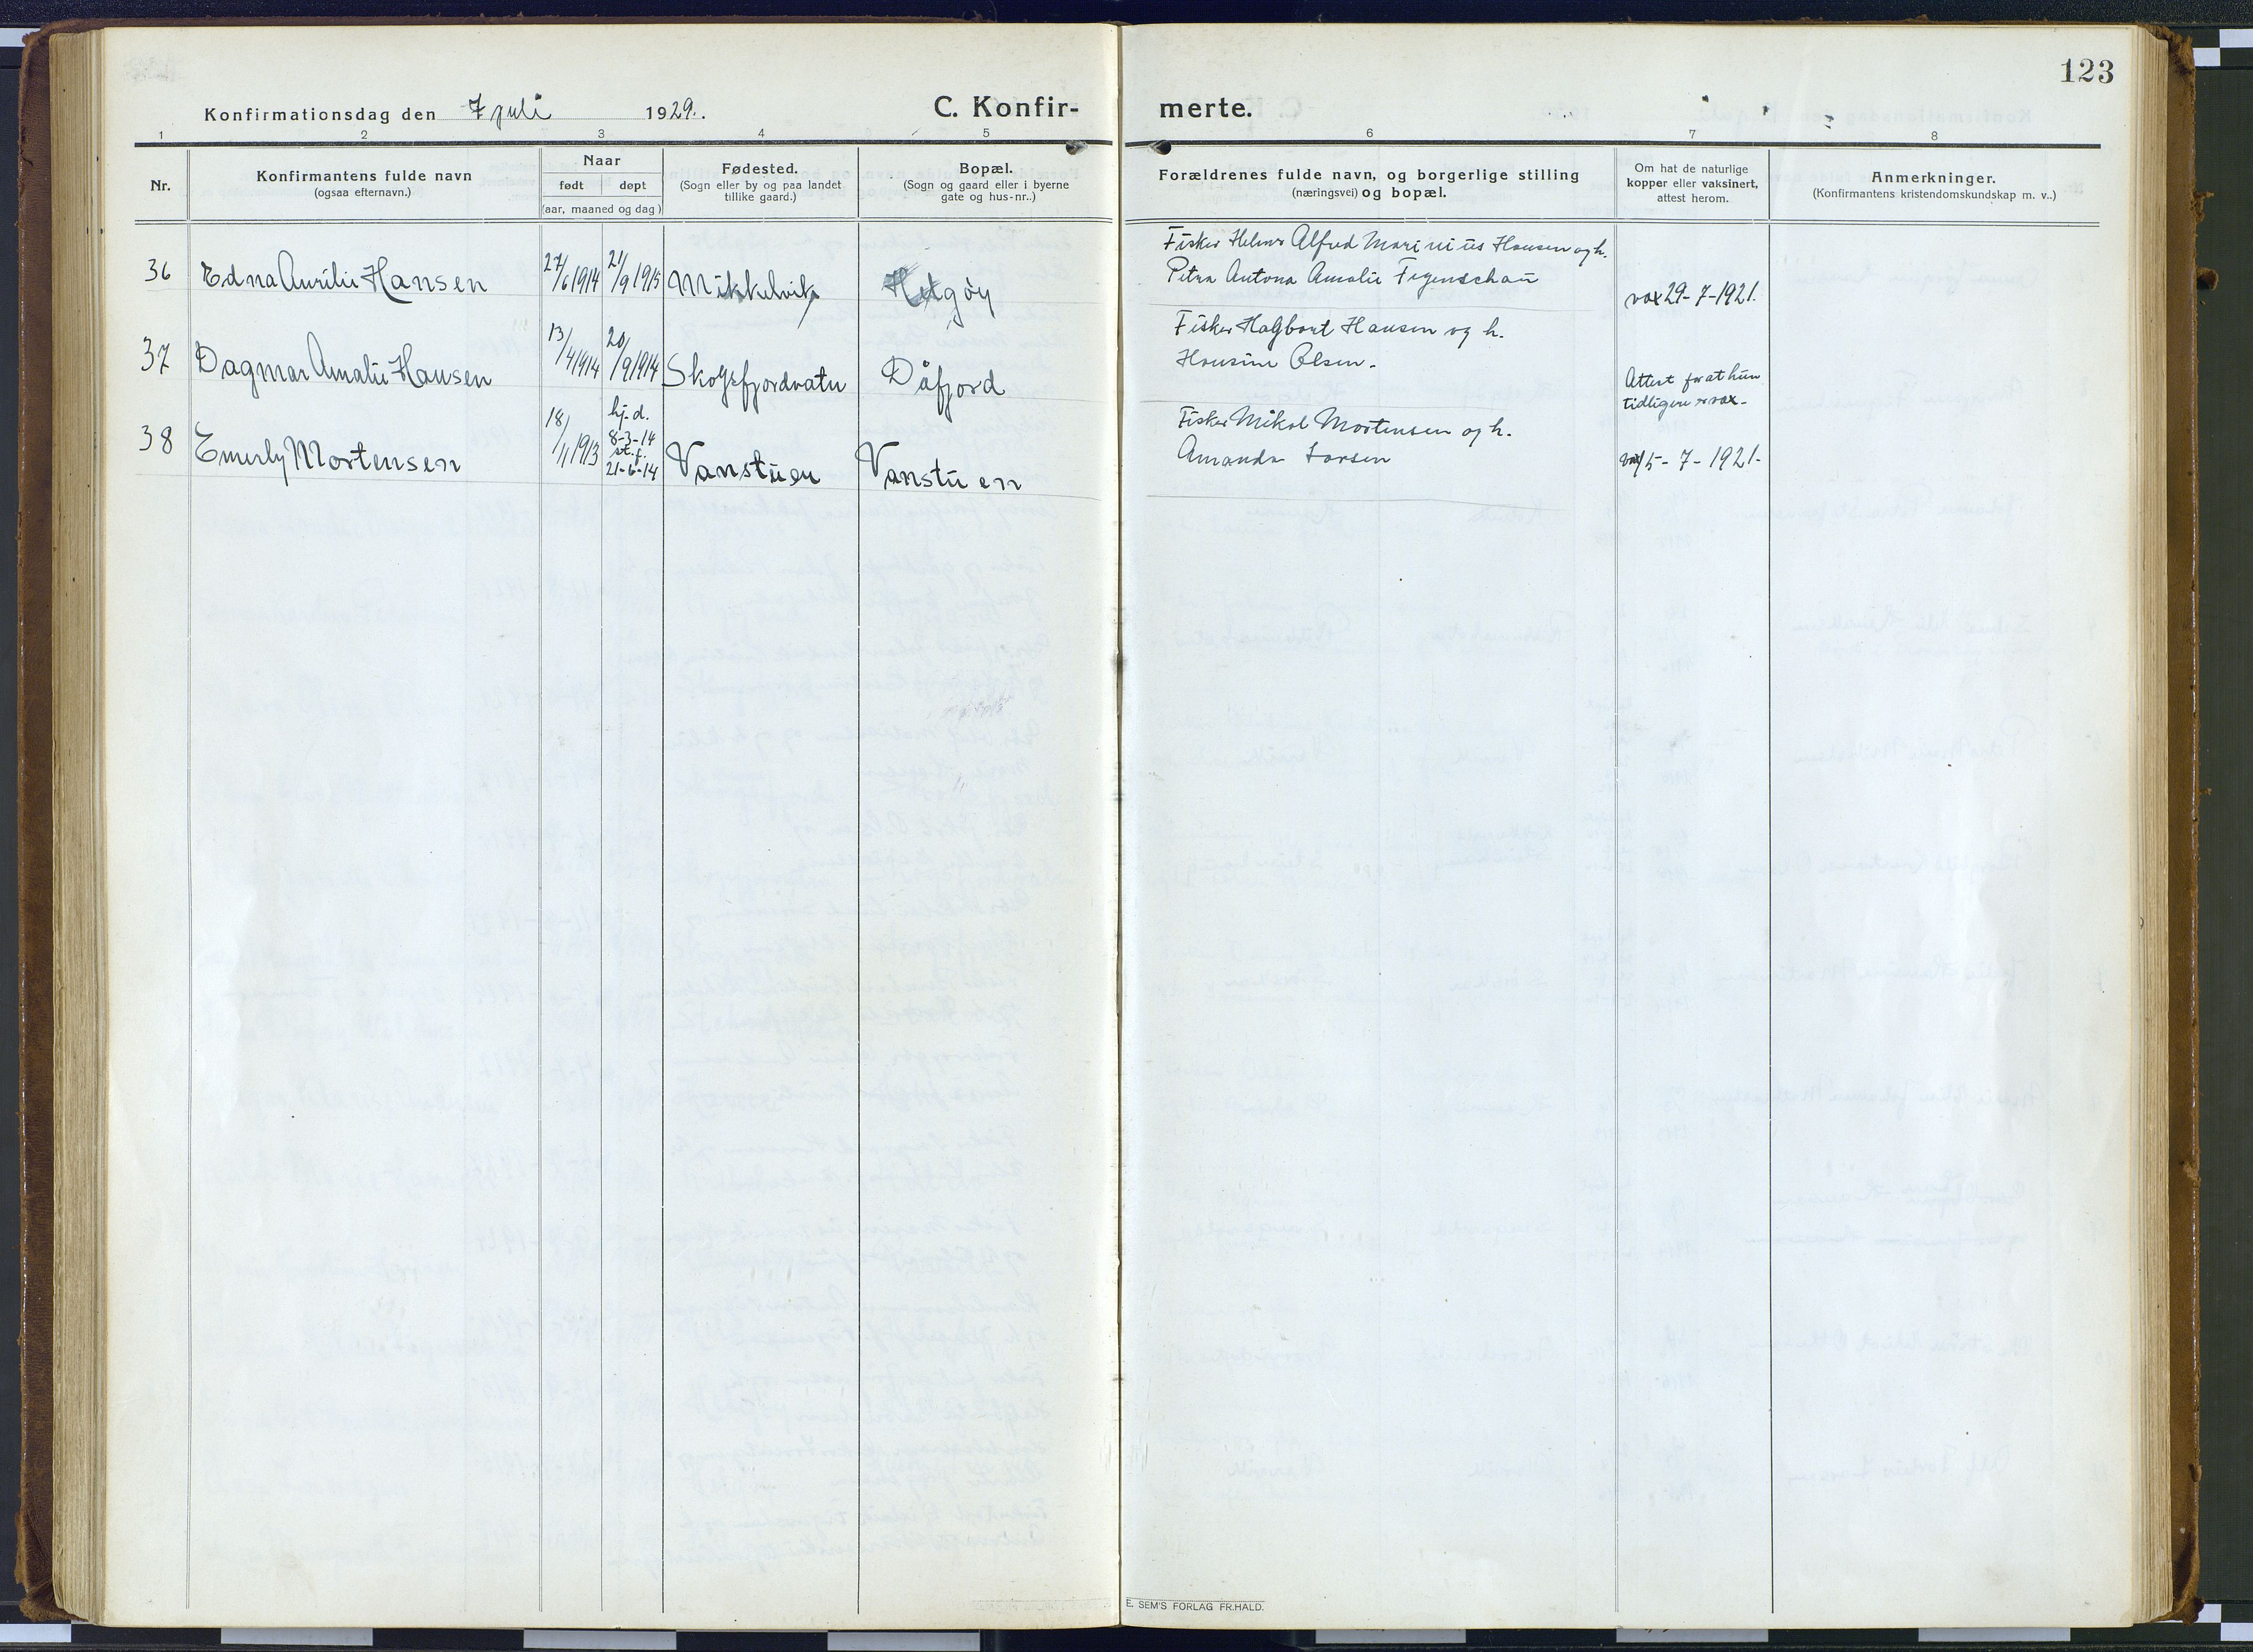 123
Konfirmationsdag den 7 juli 1929. C. Konfir- merte.
1 2 3 4 5 6 7 8
Nr.
Konfirmantens fulde navn
(ogsaa efternavn.)
Naar
født døpt
(aar, maaned og dag)
Fødested.
(Sogn eller by og paa landet
tillike gaard.)
Bopæl.
(Sogn og gaard eller i byerne
gate og hus-nr..)
Forældrenes fulde navn, og borgerlige stilling
(næringsvei) og bopæl.
Om hat de naturlige
kopper eller vaksinert,
attest herom.
Anmerkninger.
(Konfirmantens kristendomskundskap m. v..)
36 Edna Aurilie Hansen 27/6 1914 21/9 1915 Mikkelvik Helgøy
Fisker Helmer Alfred Marinius Hansen og h.
Petra Antona Amalie Figenschau
vax 29-7-1921.
37 Dagmar Amalie Hansen 13/4 1914 20/9 1914 Skogsfjordvatn Dåfjord
Fisker Hagbart Hansen og h.
Hansine Olsen.
Attest for at hun
tidligere er vax.
38 Emerly Mortensen 18/11 1913
hj. d.
8-3-14
st. f.
21-6-14
Vanstuen Vanstuen
Fisker Mikal Mortensen og h.
Amanda Larsen
vax 15-7-1921.
E. SEM'S FORLAG FR.HALD.